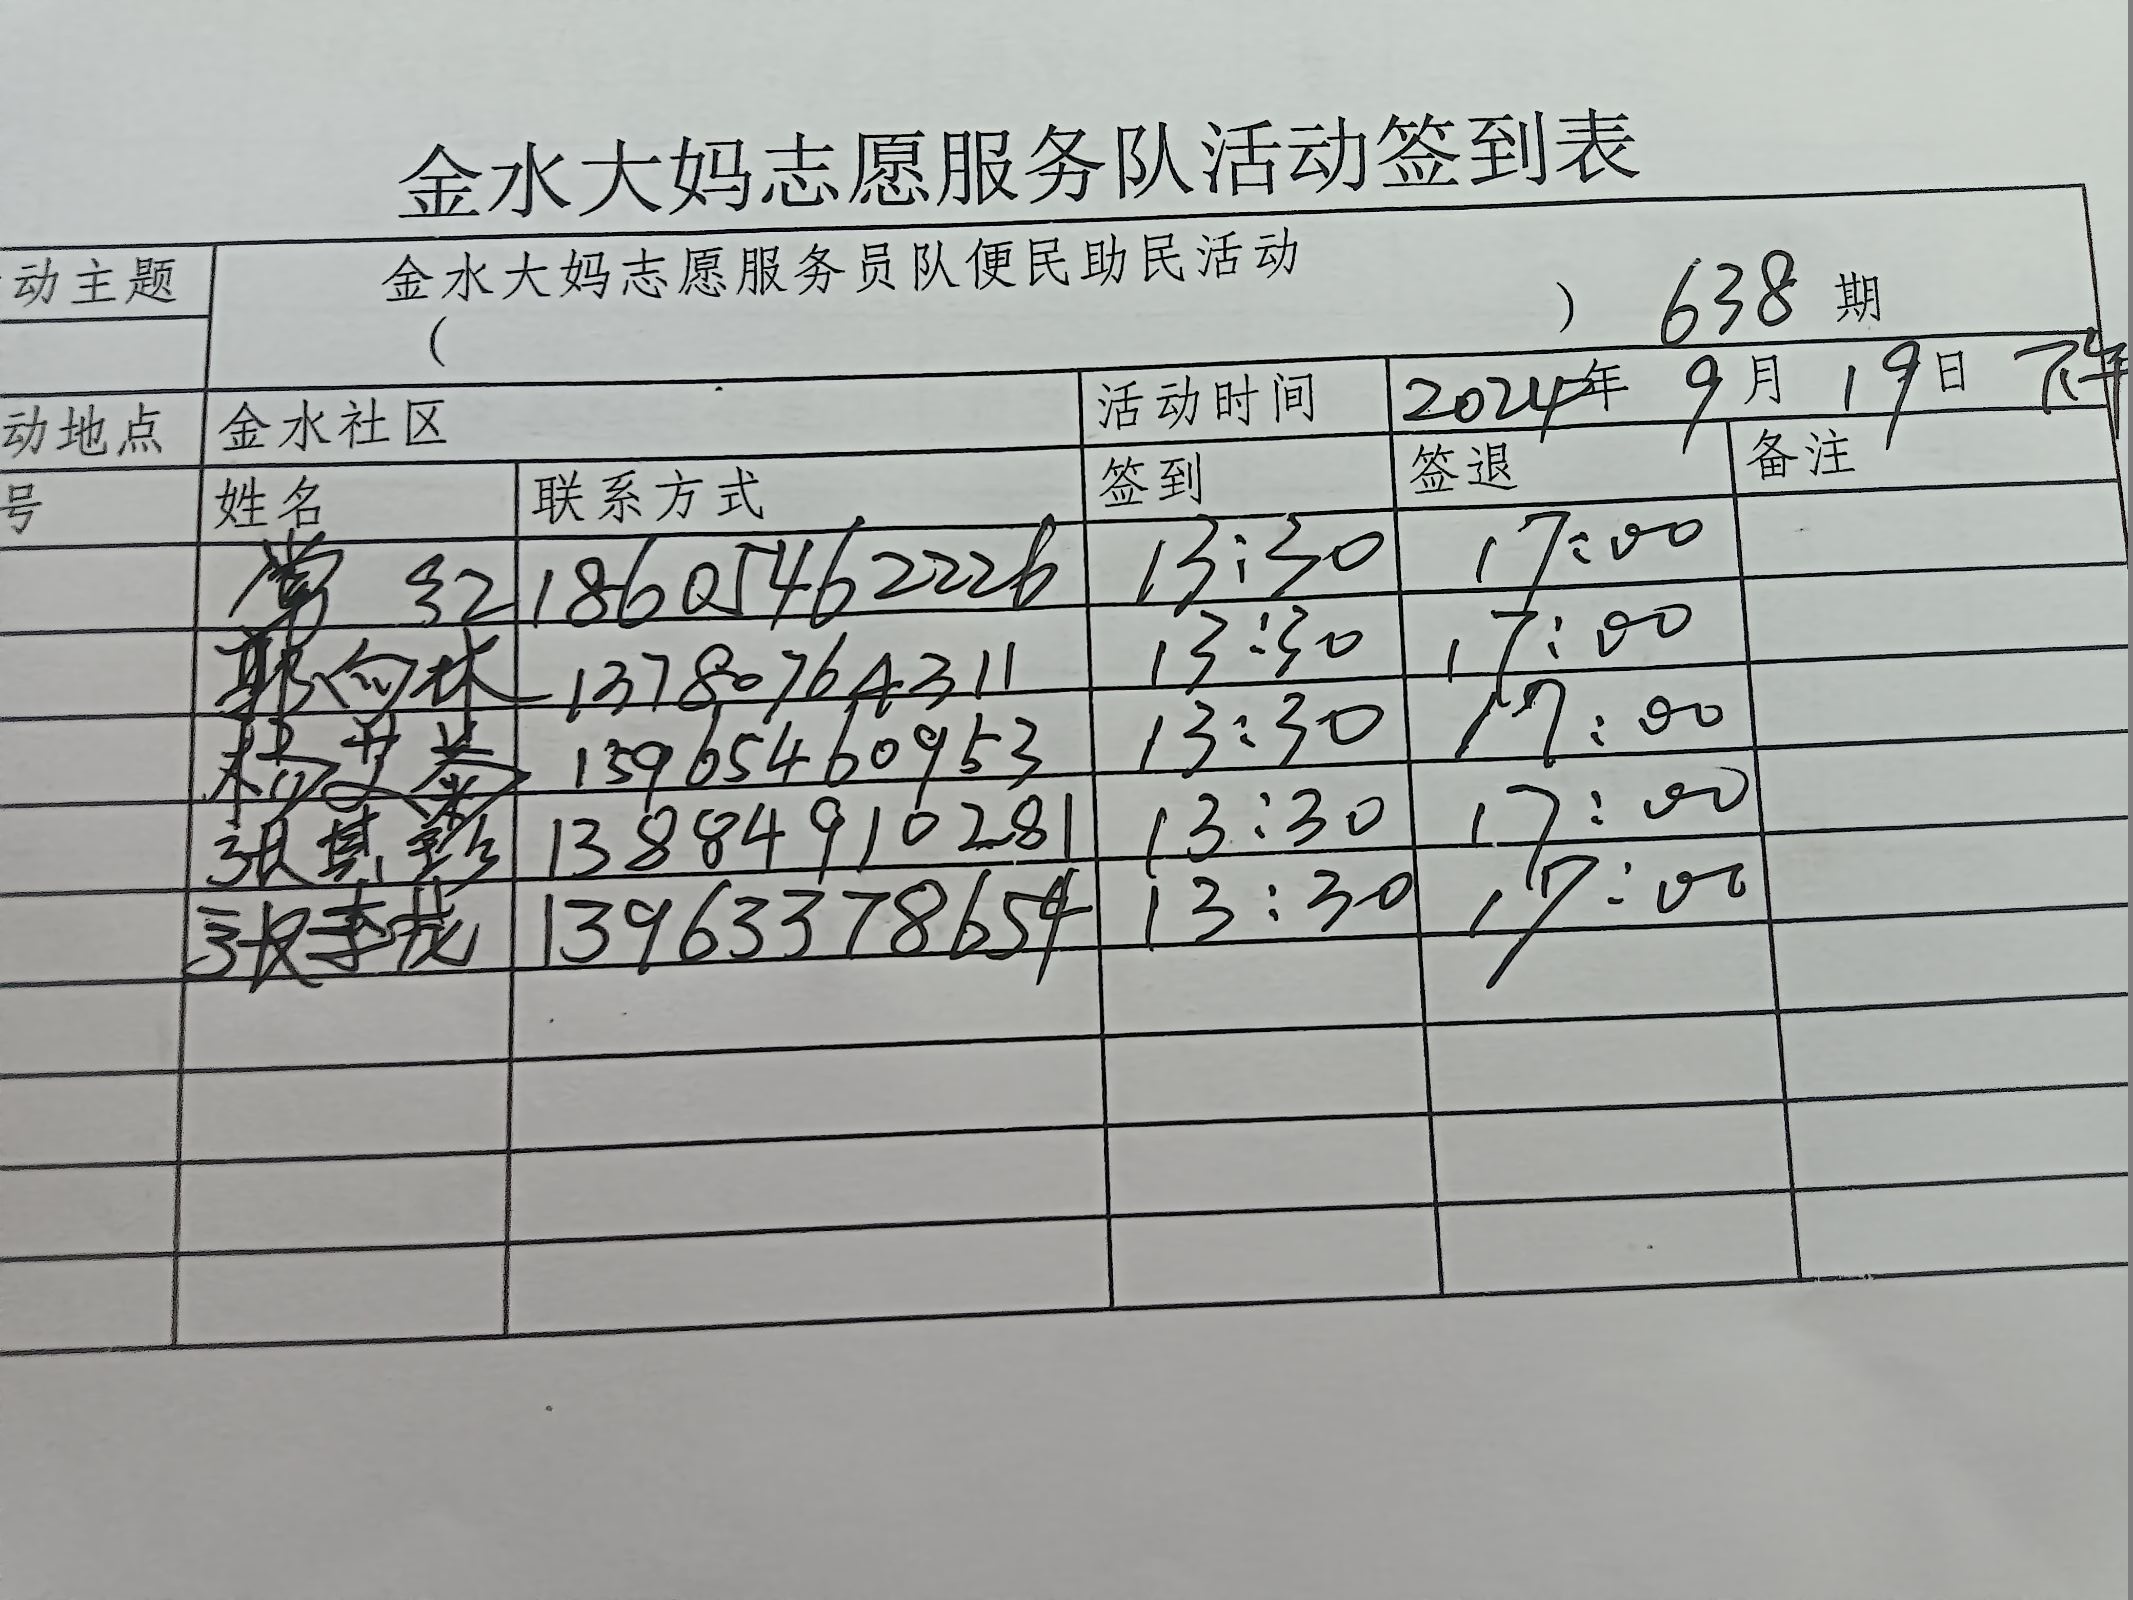 金水大妈志愿服务队活动签到表
动主题 金水大妈志愿服务员队便民助民活动
( ) 638 期
动地点 金水社区 活动时间 2024年 9月 19日 下午
号 姓名 联系方式 签到 签退 备注
常红 18605462226 13:30 17:00
13780764311 13:30 17:00
杨艾荣 13965460953 13:30 17:00
张其彩 13884910281 13:30 17:00
张季茂 13963378654 13:30 17:00